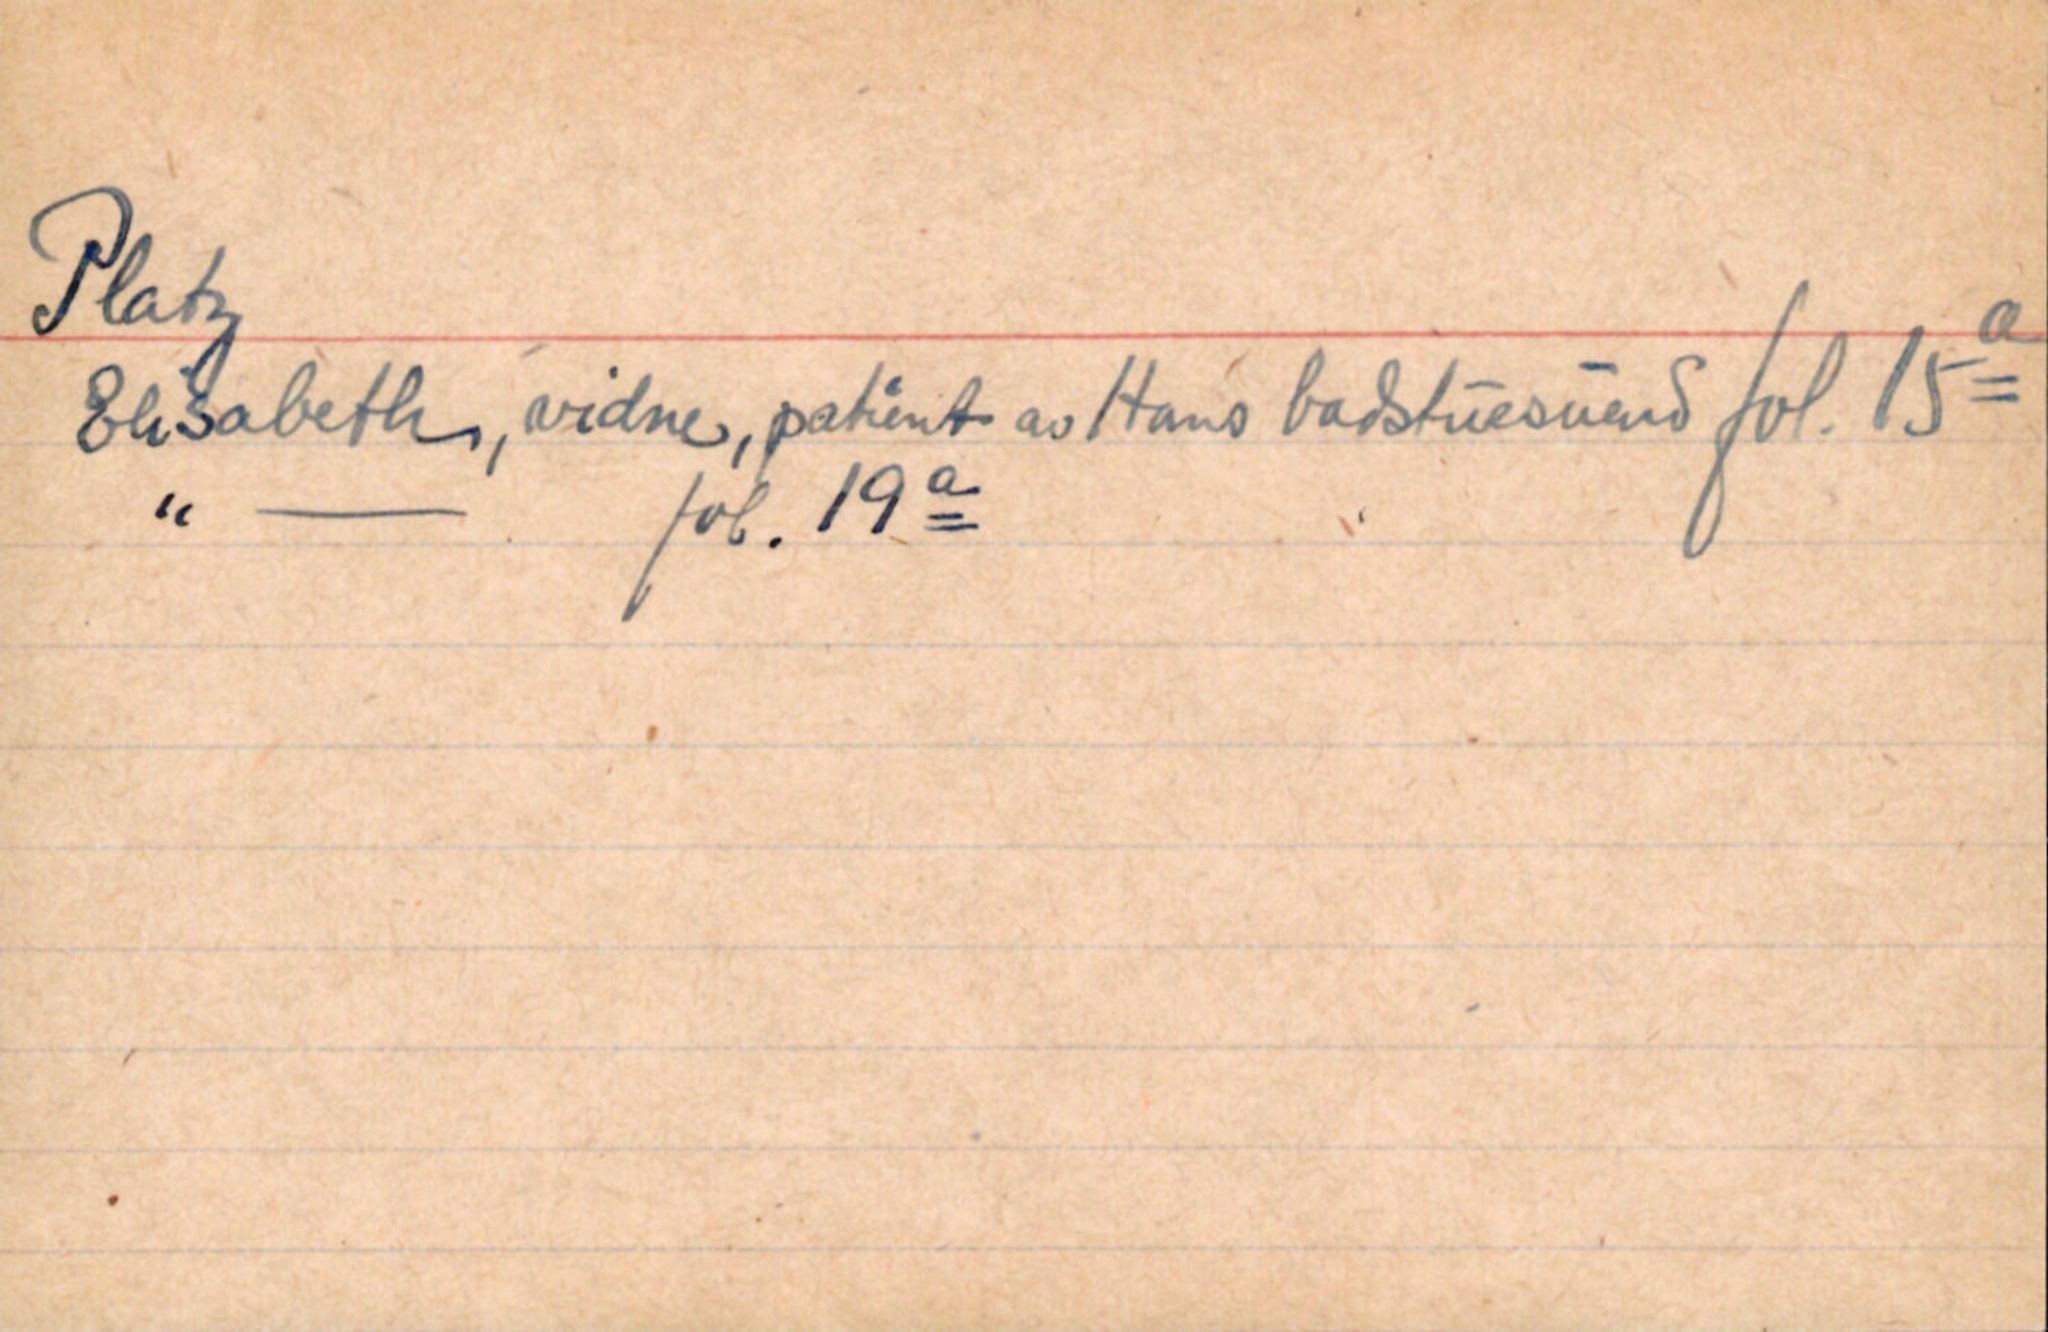 Platz
Elisabeth, vidne, patient av Hans badstuesvend fol. 15ª
" — fol. 19ª